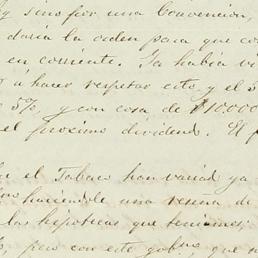 y sino fior una Convencion,
daria la orden para que co
en corriente. Ya habia vi
á hacer respetar esto, y el S
5%, y con cosa de $10000
el proximo dividendo. El p
en el Tabaco han variado ya
haciendole una reseña de
las hipotecas que tenemos;
pero con este gobno, que n